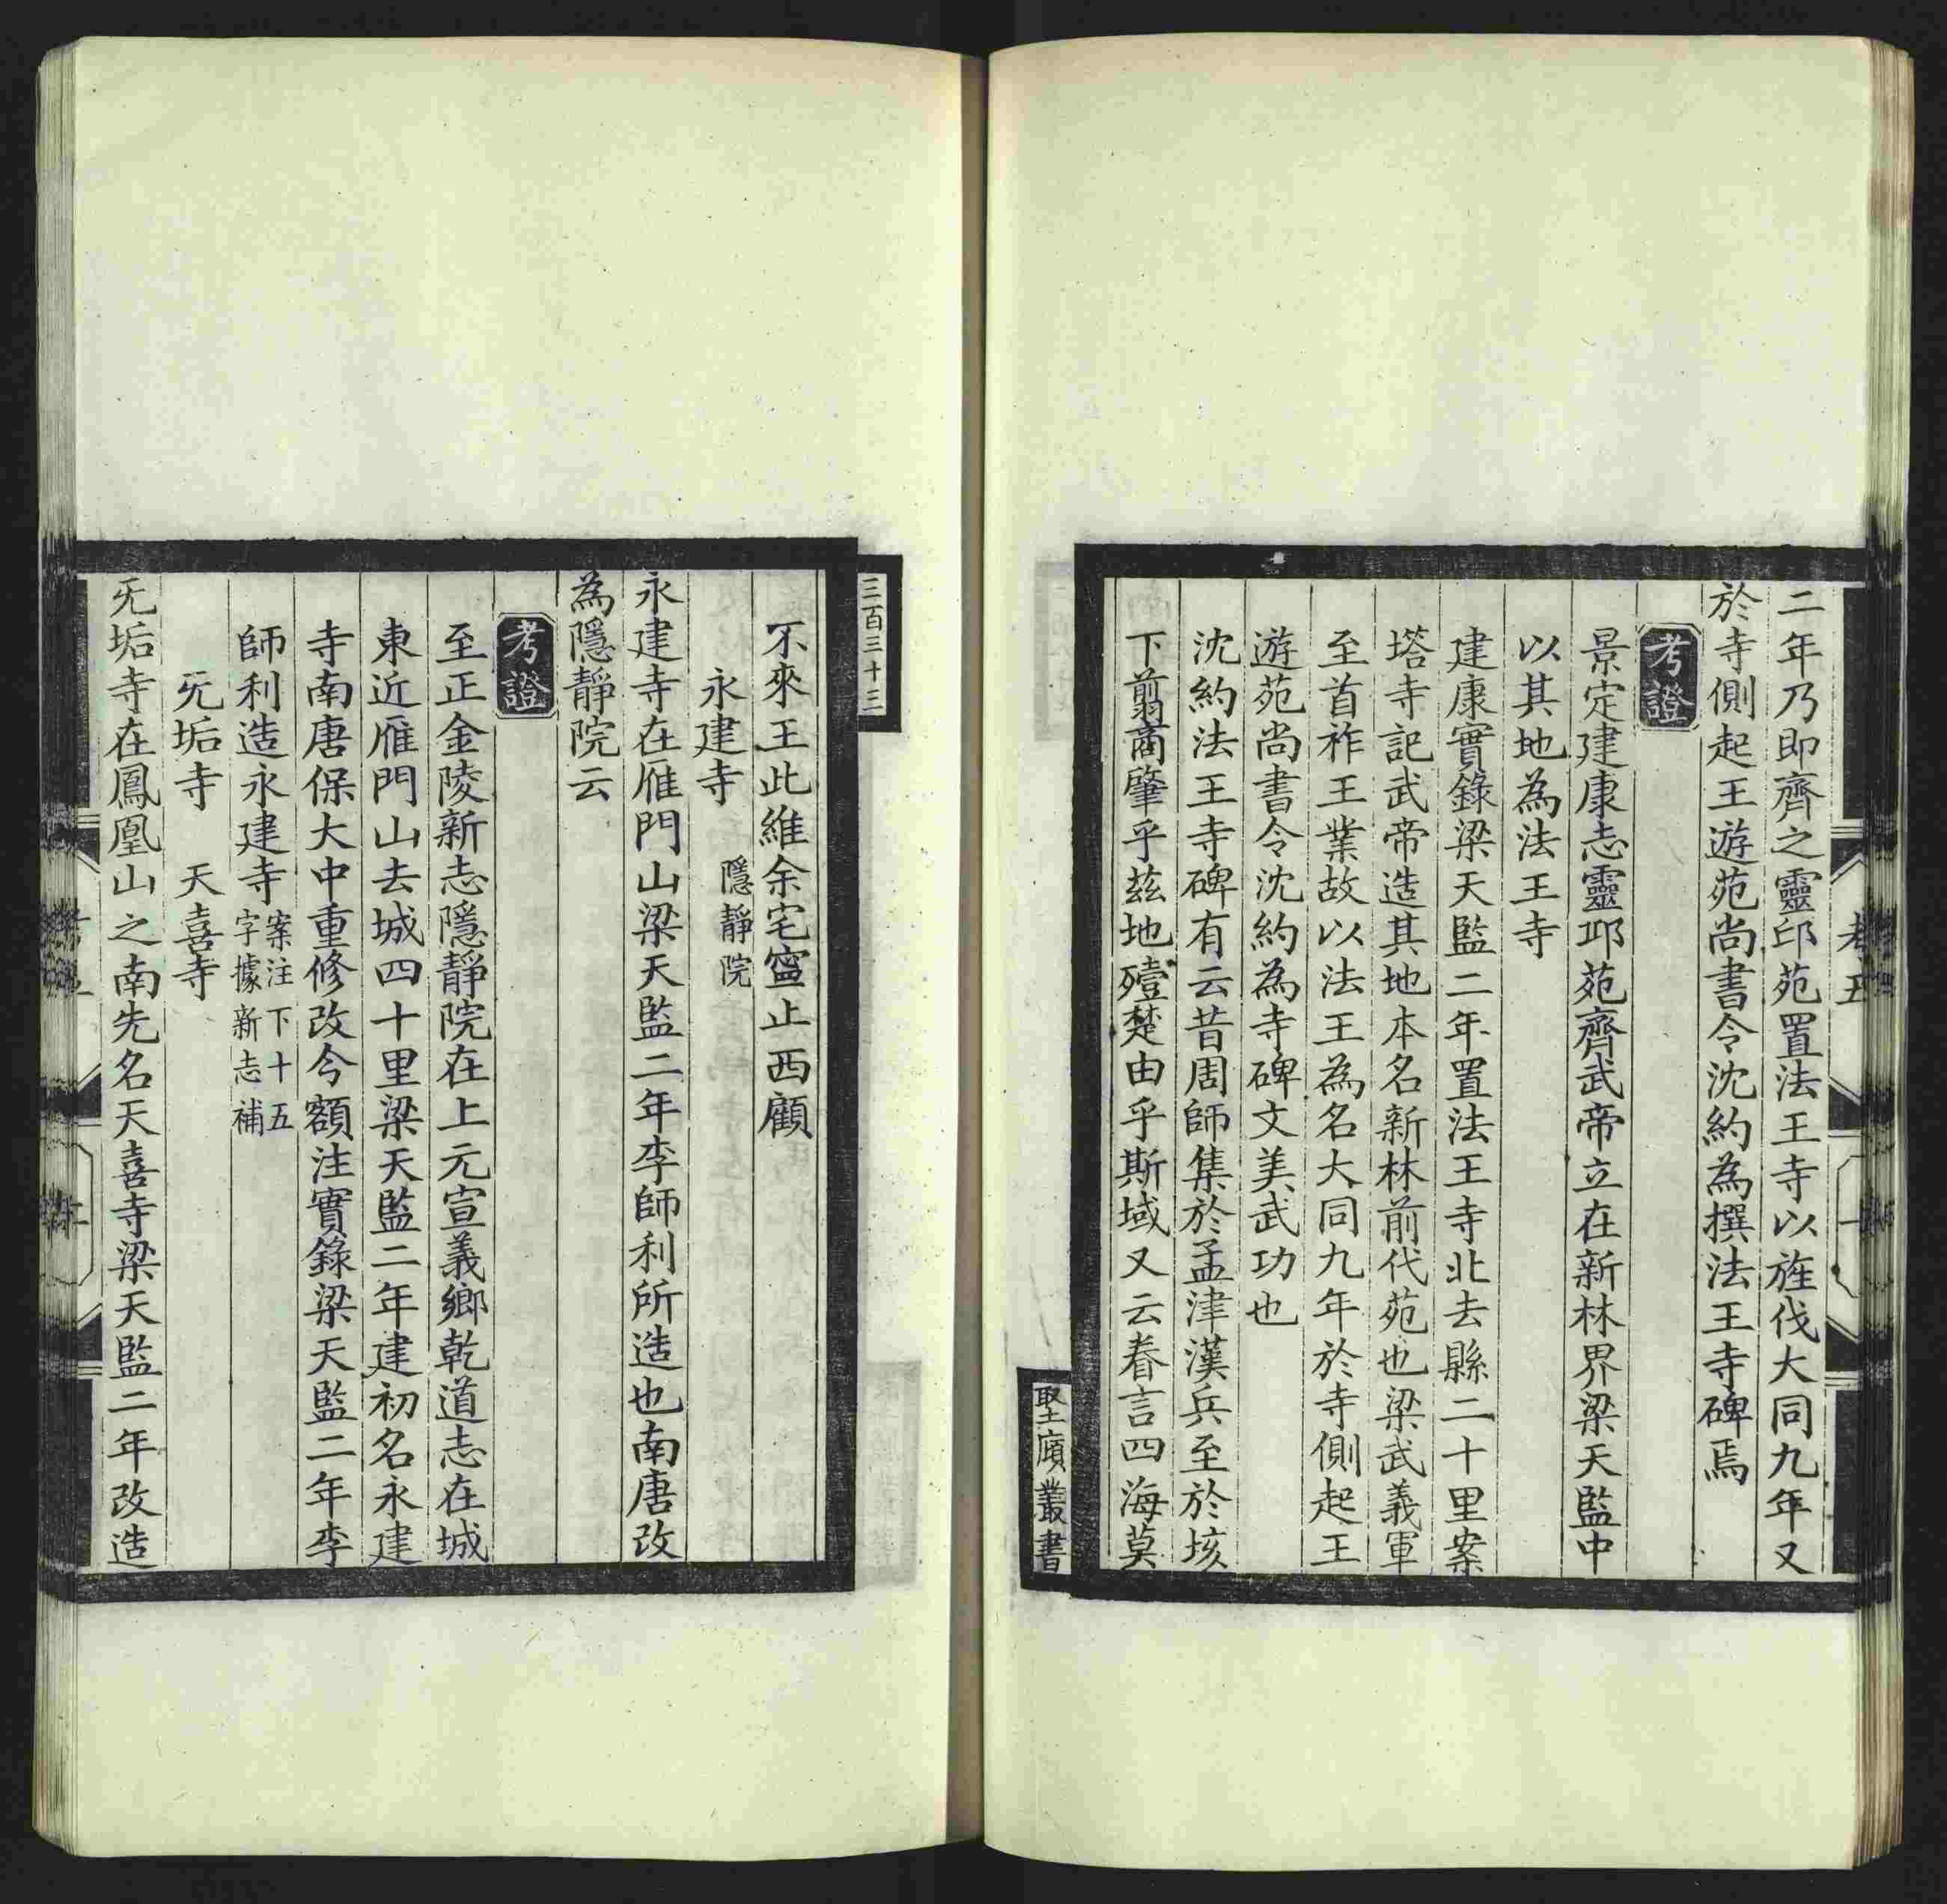 二年乃即齊之靈邱苑置法王寺以旌伐大同九年又
於寺側起王遊苑尚書令沈約為撰法王寺碑焉
考證
景定建康志靈邛苑齊武帝立在新林界梁天監中
以其地為法王寺
建康實錄梁天監二年置法王寺北去縣二十里案
塔寺記武帝造其地本名新林前代苑也梁武義軍
至首祚王業故以法王為名大同九年於寺側起王
遊苑尚書令沈約為寺碑文美武功也
沈約法王寺碑有云昔周師集於孟津漢兵至於垓
下翦商肇乎茲地殪楚由乎斯域又云眷言四海莫
堅匏叢書
三百三十三
不來王此維余宅寍止西顧
永建寺 隱靜院
永建寺在雁門山梁天監二年李師利所造也南唐改
為隱靜院云
考證
至正金陵新志隱靜院在上元宣義鄉乾道志在城
東近雁門山去城四十里梁天監二年建初名永建
寺南唐保大中重修改今額注實錄梁天監二年李
師利造永建寺案注下十五字據新志補
旡垢寺 天喜寺
旡垢寺在鳳凰山之南先名天喜寺梁天監二年改造